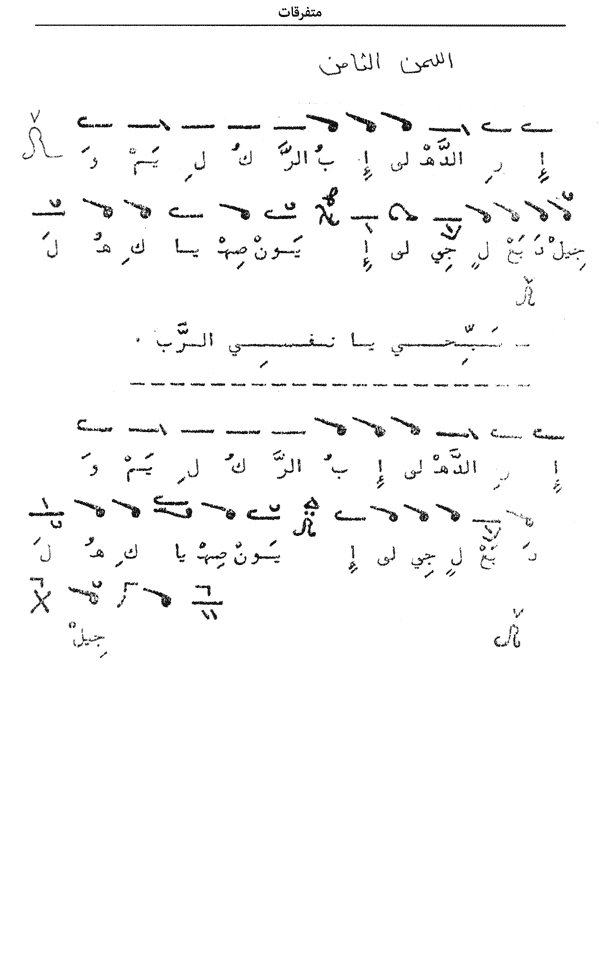 متفرقات
اللحن الثامن
وَ يَمْ لِ كُ الرَّ بُ إِ لى الدَّهْ رِ إِ
لَ هُ كِ يا صِهْ يَونْ إِ لى جِي لٍ بَعْ دَ جِيلْ
سَبِّحي يا نفسِي الرَّب .
وَ يَمْ لِ كُ الرَّ بُ إِ لى الدَّهْ رِ إِ
لَ هُ كِ يا صِهْ يَونْ إِ لى جِي لٍ بَعْ دَ
جِيلْ